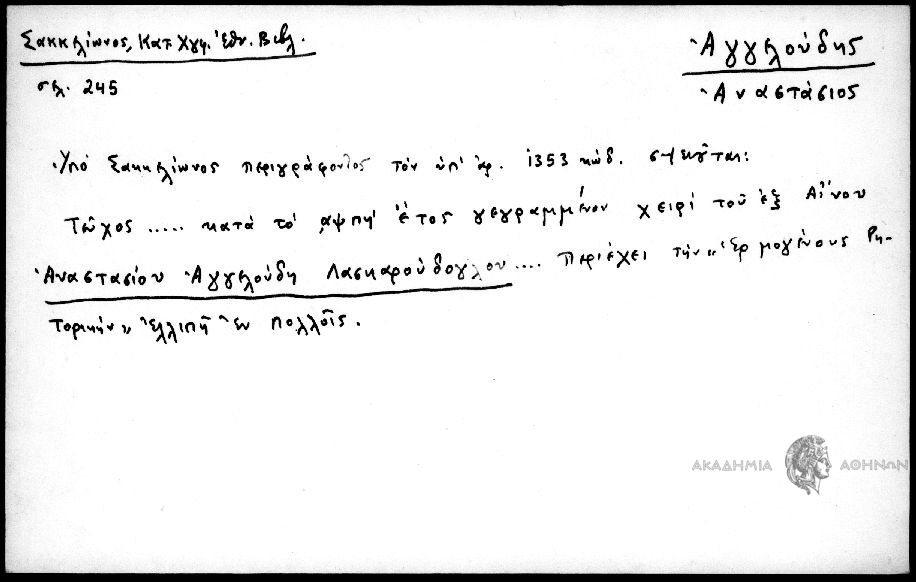 Σακκελίωνος, Κατ. Χγφ. Ἐθν. Βιβλ.
σελ. 245
Ἀγγελούδης
Ἀναστάσιος
Ὑπὸ Σακκελίωνος περιγράφοντος τὸν ὑπ' ἀρ. 1353 κώδ. σημειοῦται:
Τεῦχος ..... κατὰ τὸ ͵αψπηʹ ἔτος γεγραμμένον χειρὶ τοῦ ἐξ Αἴνου
Ἀναστασίου Ἀγγελούδη Λασκαρούδογλου .... περιέχει τὴν „Ἑρμογένους Ῥη-
τορικὴν„ ἐλλιπῆ ἐν πολλοῖς.
ΑΚΑΔΗΜΙΑ ΑΘΗΝΩΝ